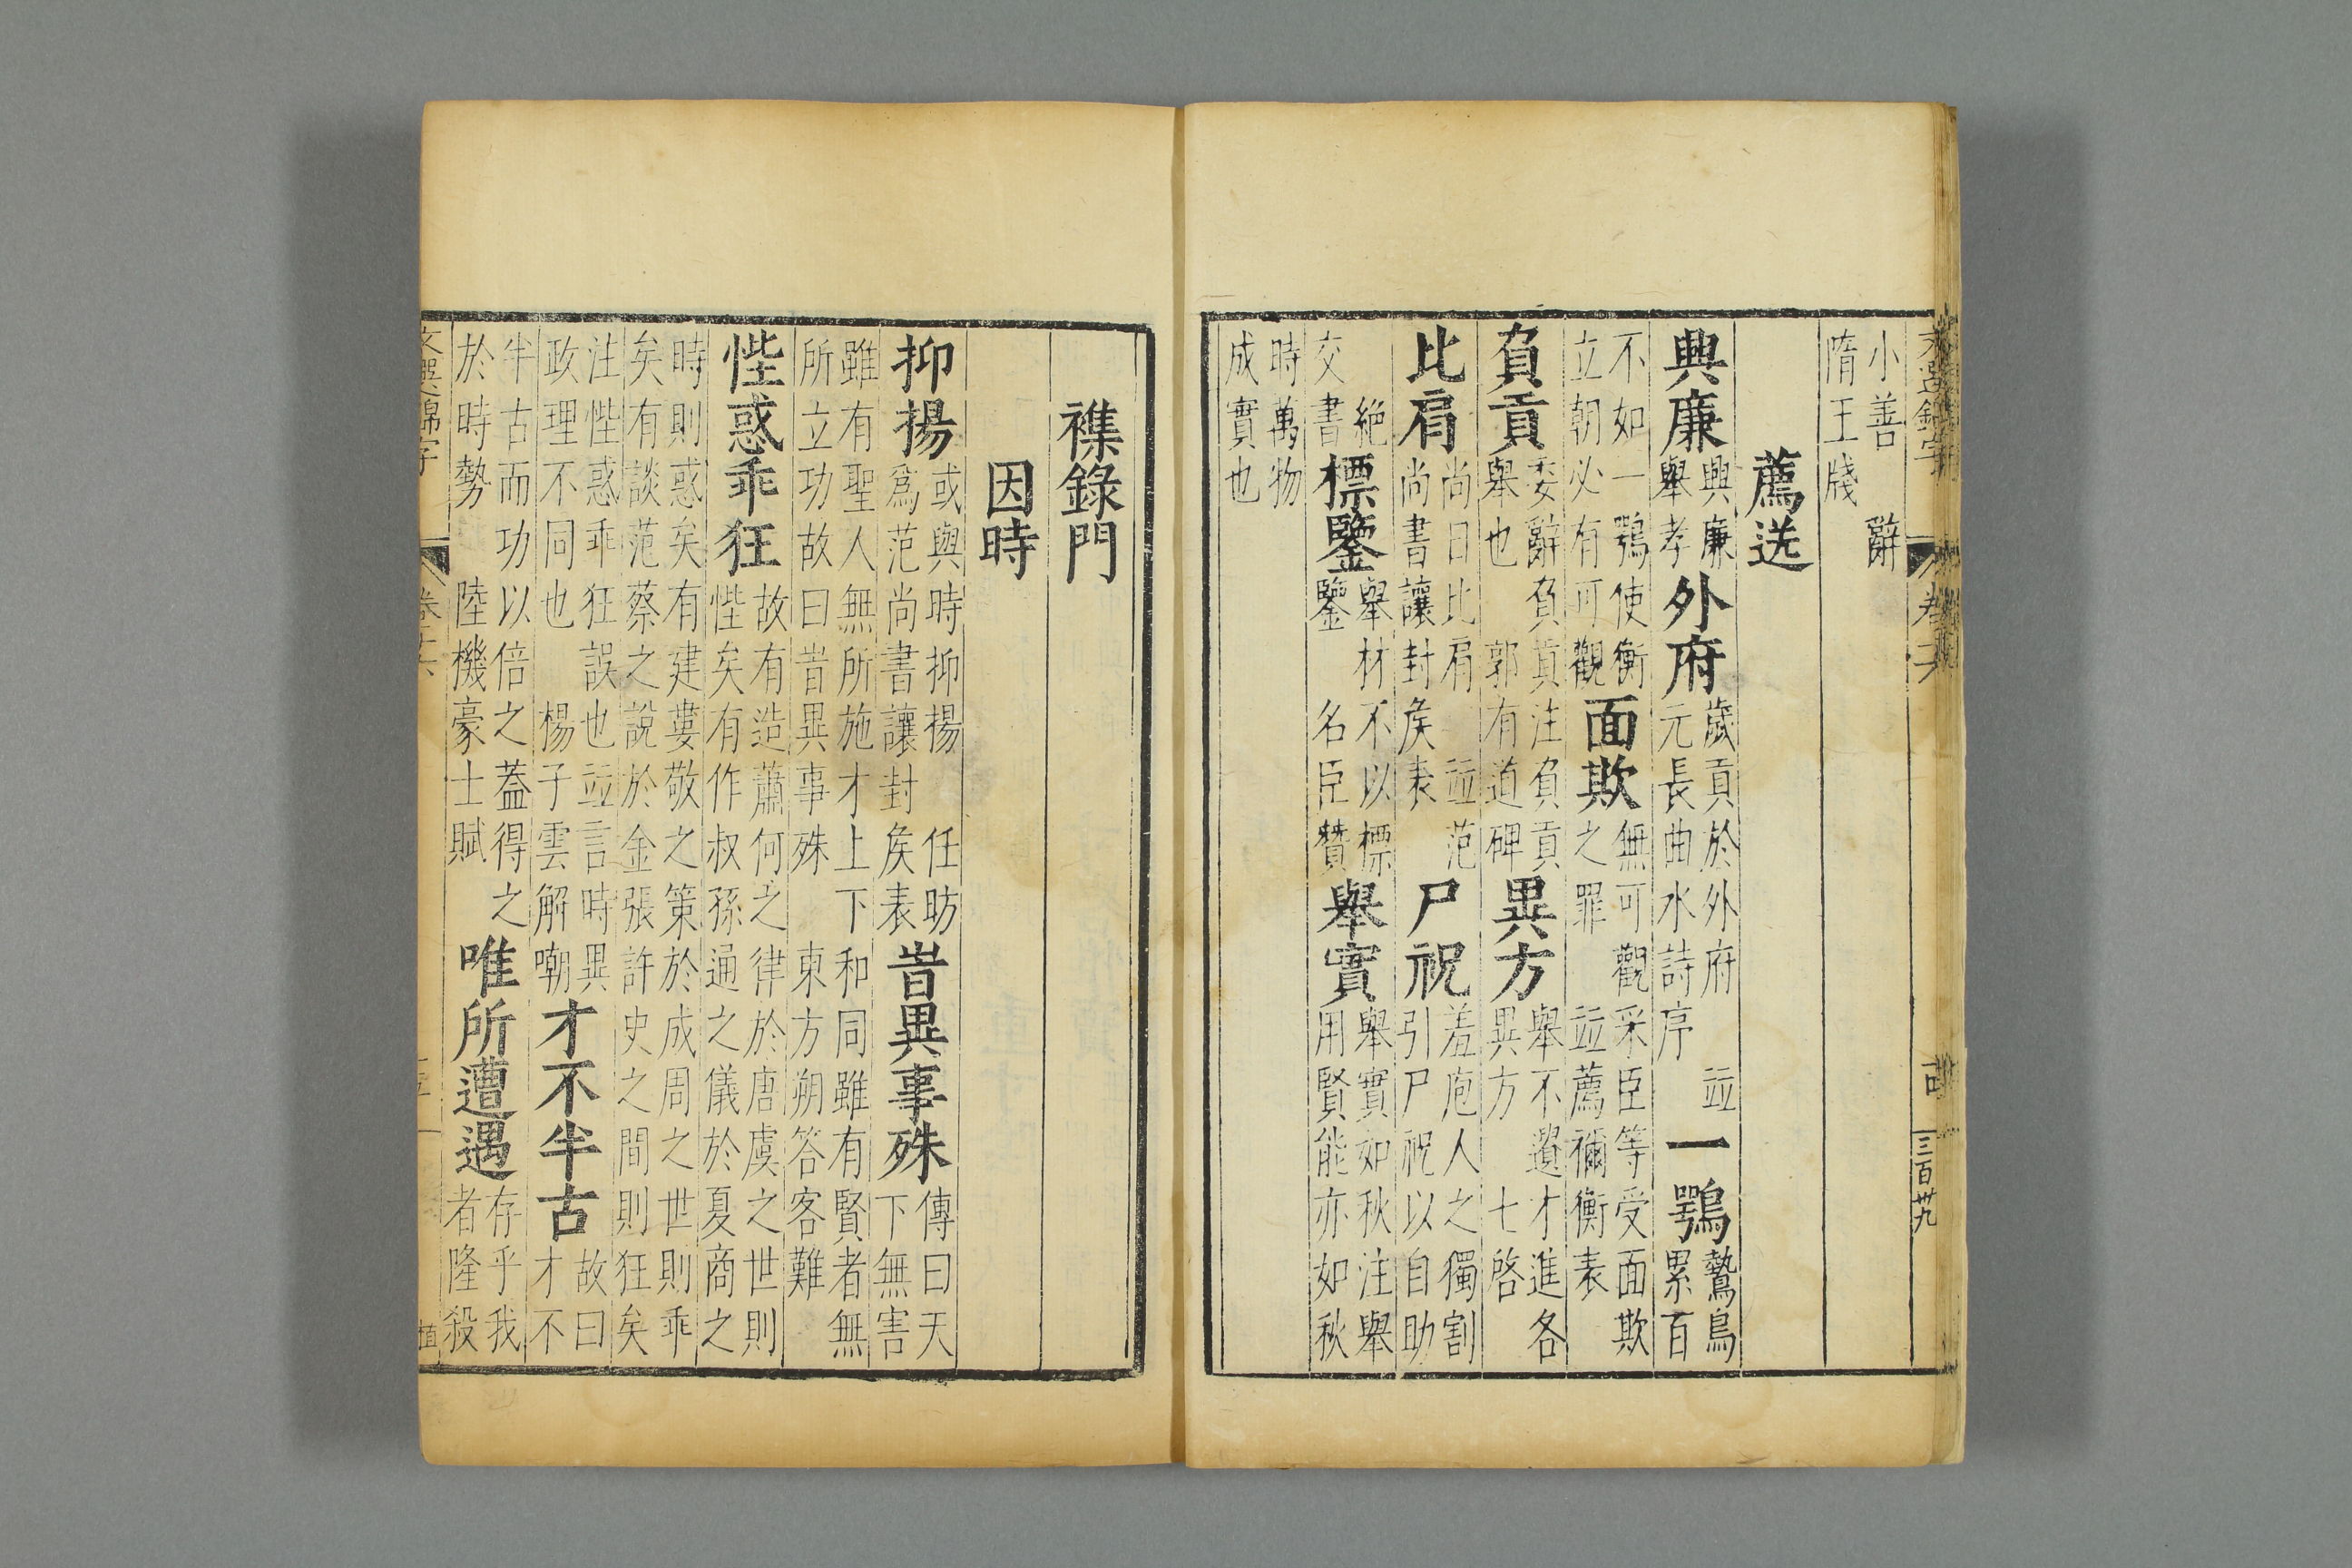 小善　辭
隋王牋
薦送
興廉 興廉舉孝 外府 歲貢於外府　竝元長曲水詩序 一鶚 鷙鳥累百
不如一鶚使衡立朝必有可觀 面欺 無可觀采臣等受面欺之罪　竝薦禰衡表
負貢 委辭負貢注負貢舉也　郭有道碑 異方 舉不遺才進各異方　七啓
比肩 尚曰比肩　竝范尚書讓封矦表 尸祝 羞庖人之獨割引尸祝以自助
絕交書 標鑒 舉材不以標鑒　名臣贊 舉實 舉實如秋注舉用賢能亦如秋
時萬物成實也
襍錄門
因時
抑揚 或與時抑揚　任昉爲范尚書讓封矦表 旹異事殊 傳曰天下無害
雖有聖人無所施才上下和同雖有賢者無所立功故曰旹異事殊　東方朔答客難
悂惑乖狂 故有造蕭何之律於唐虞之世則悂矣有作叔孫通之儀於夏商之
時則惑矣有建婁敬之策於成周之世則乖矣有談范蔡之說於金張許史之間則狂矣
注悂惑乖狂誤也竝言時異政理不同也　楊子雲解嘲 才不半古 故曰才不
半古而功以倍之蓋得之於時勢　陸機豪士賦 唯所遭遇 存乎我者隆殺
文選錦字
卷
三百卅九